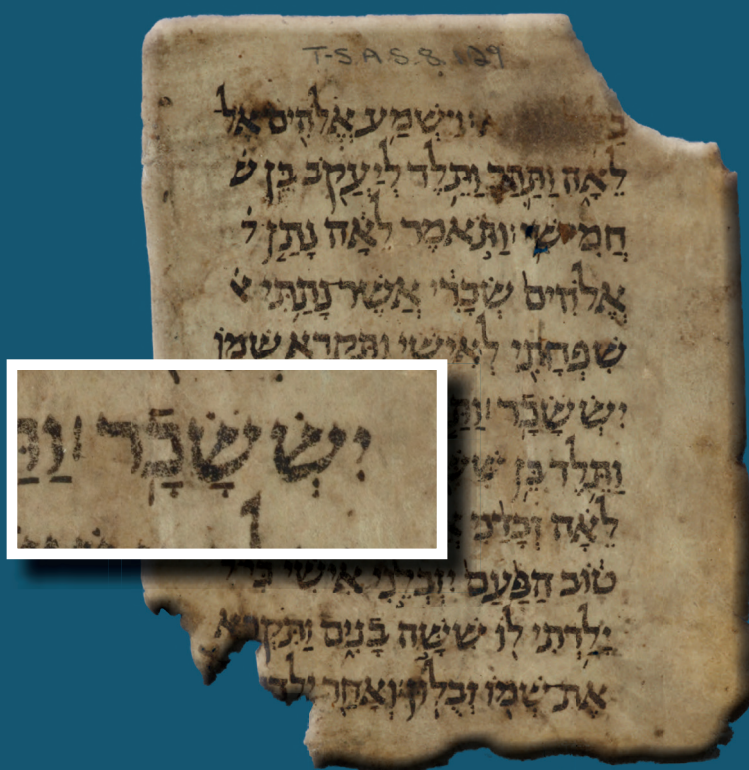 T-S A.S. 8.129
וַיִּשְׁמַע אֱלֹהִים אֶל
לֵאָה וַתַּהַר וַתֵּלֶד לְיַעֲקֹב בֵּן
חֲמִישִׁי׃ וַתֹּאמֶר לֵאָה נָתַן
אֱלֹהִים שְׂכָרִי אֲשֶׁר־נָתַתִּי
שִׁפְחָתִי לְאִישִׁי וַתִּקְרָא שְׁמוֹ
יִשְׂשָׂכָר׃
וַתֵּלֶד בֵּן
לֵאָה
טוֹב הַפַּעַם יִזְבְּלֵנִי אִישִׁי כִּי
יָלַדְתִּי לוֹ שִׁשָּׁה בָנִים וַתִּקְרָא
אֶת־שְׁמוֹ זְבֻלוּן׃ וְאַחַר
יִשְׂשָׂכָר׃